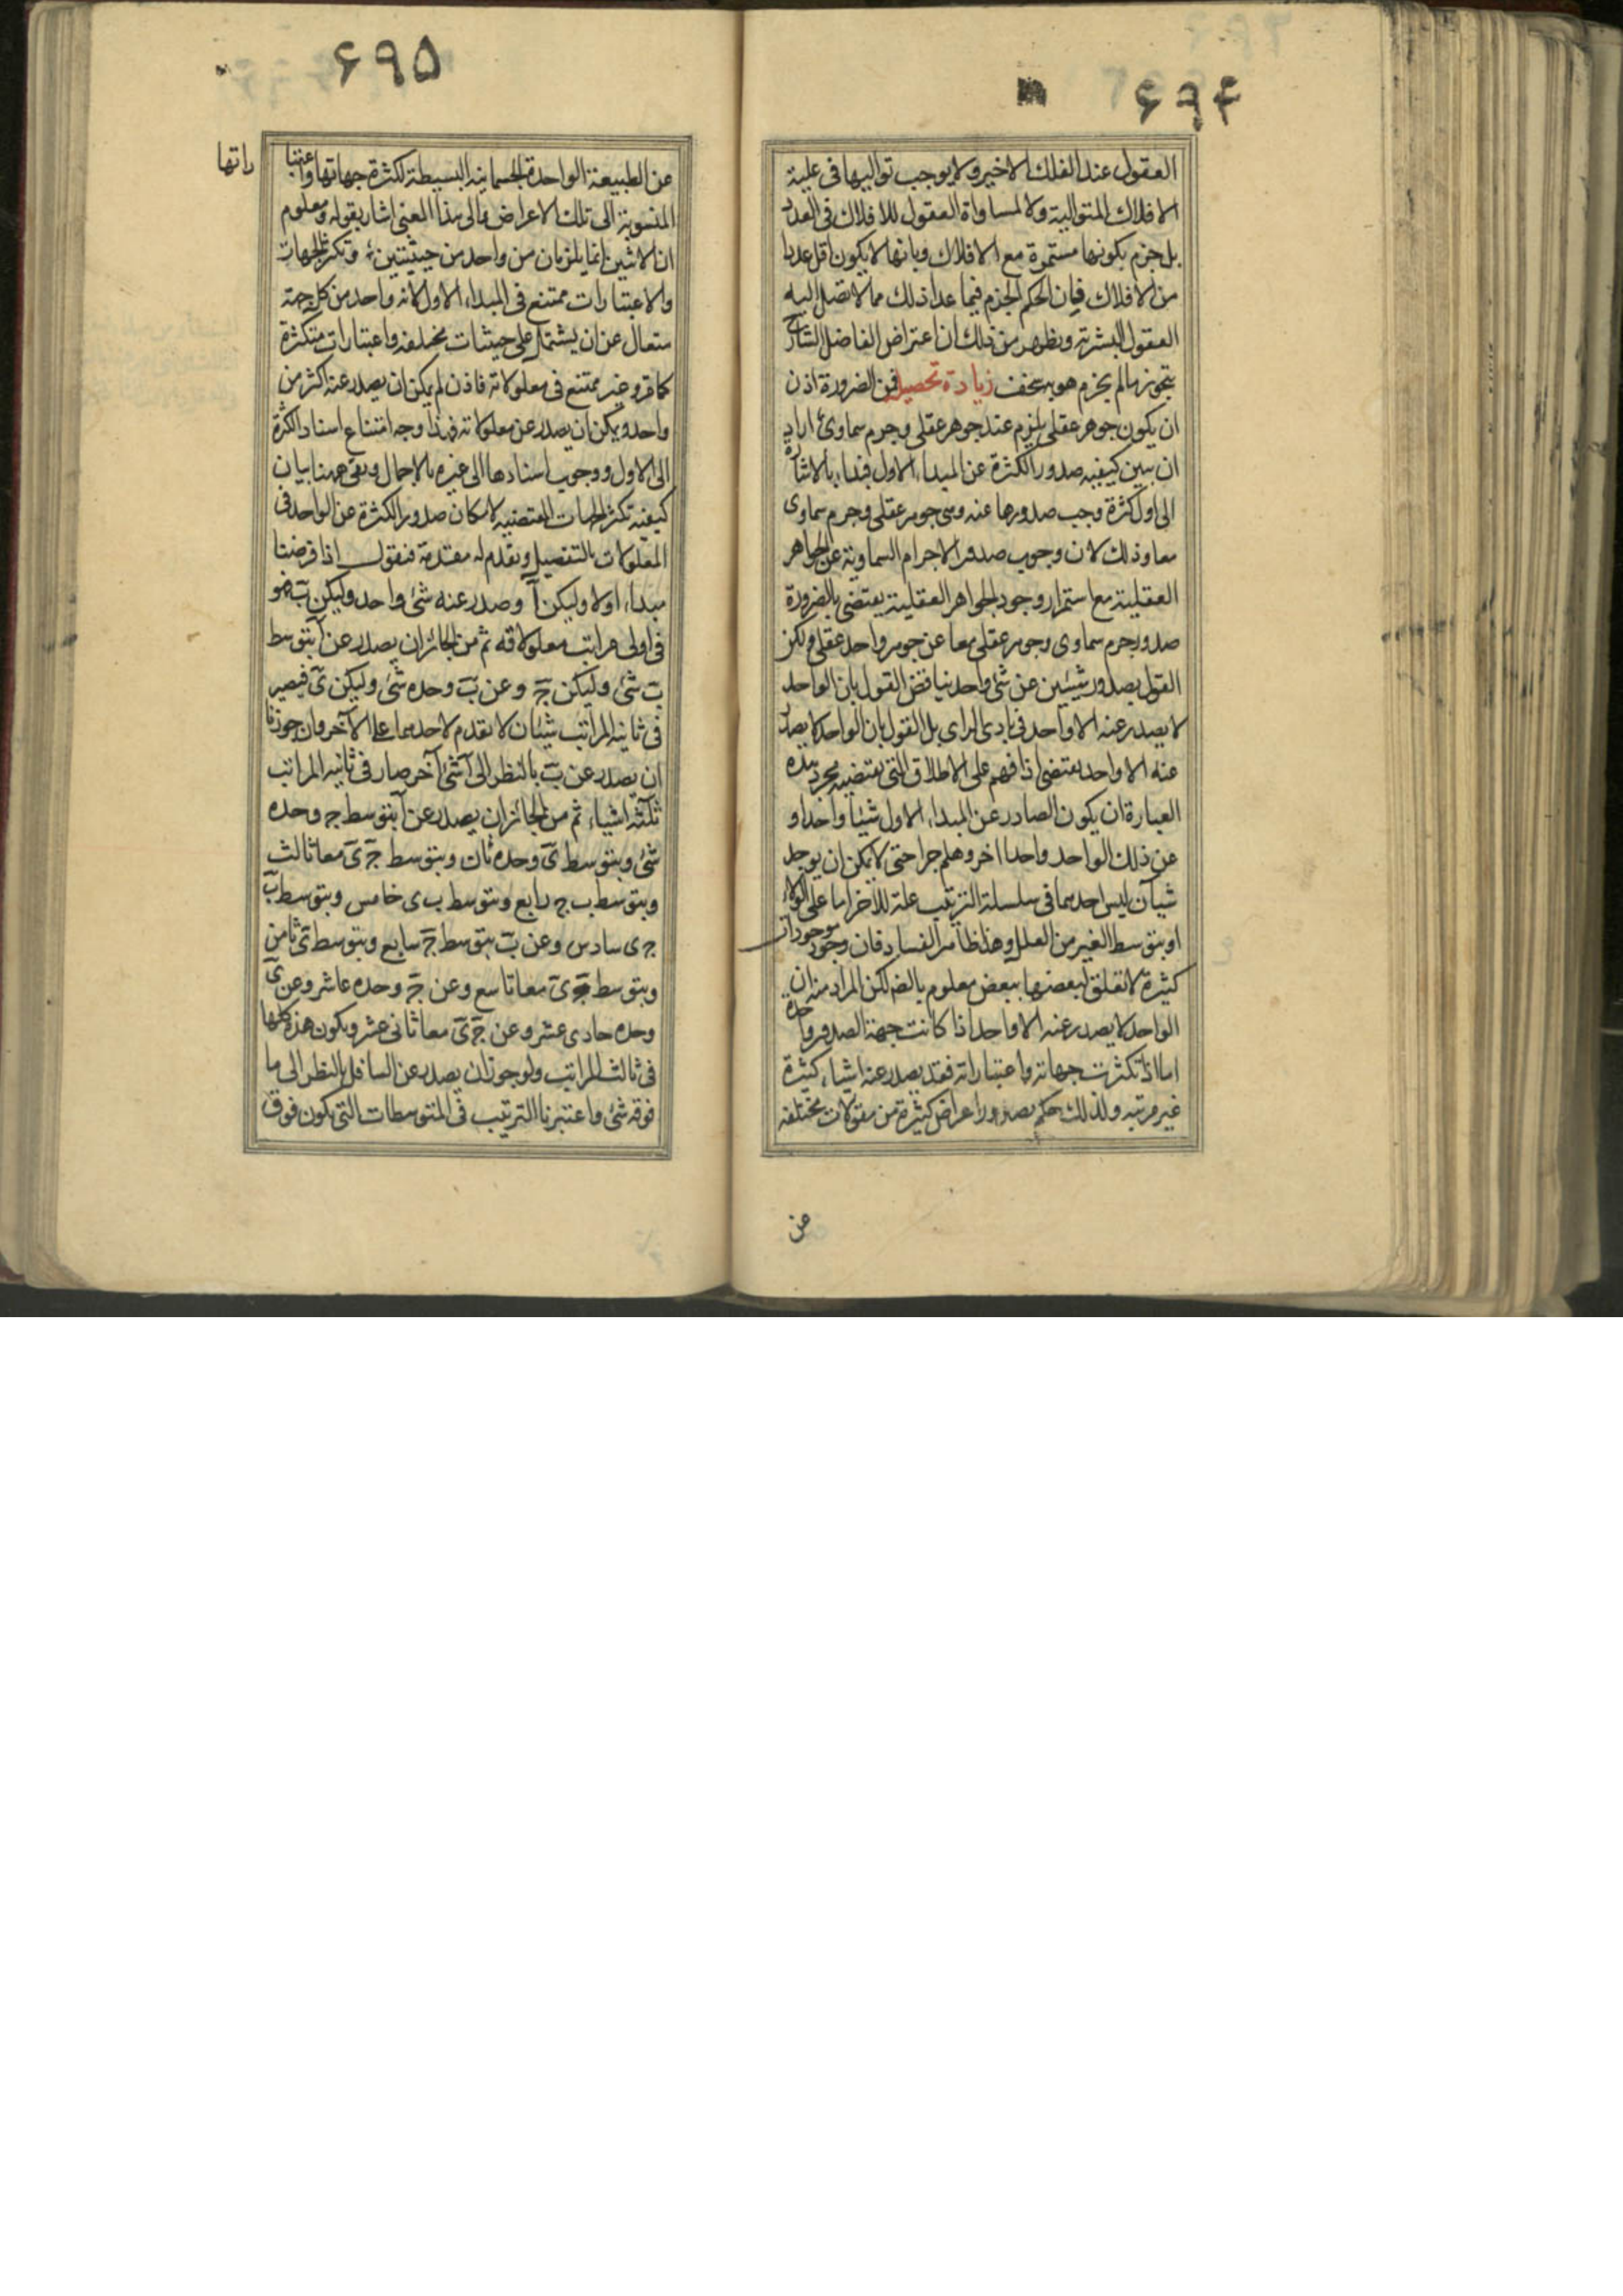 ۶۹۴
العقول عند الفلك الاخير ولا يوجب تواليها في علية
الافلاك المتوالية ولا مساواة العقول للافلاك في العدد
بل جزم بكونها مستمرة مع الافلاك وبانها لا يكون اقل عددا
من الافلاك فان الحكم الجزم فيما عدا ذلك مما لا يصل اليه
العقول البشرية ويظهر من ذلك ان اعتراض الفاضل الشارح
بتجويز ما لم يجزم هو به سخف زيادة تحصيل فمن الضرورة اذن
ان يكون جوهر عقلي يلزم عنه جوهر عقلي وجرم سماوي اراد
ان يبين كيفيه صدور الكثرة عن المبداء الاول فبداء بالاشارة
الى اول كثرة وجب صدورها عنه وهي جوهر عقلي وجرم سماوي
معا وذلك لان وجوب صدور الاجرام السماوية عن الجواهر
العقلية مع استمرار وجود الجواهر العقلية يقتضي بالضرورة
صدور جرم سماوي وجوهر عقلي معا عن جوهر واحد عقلي ولكن
القول بصدور شيئين عن شئ واحد يناقض القول بان الواحد
لا يصدر عنه الا واحد في بادي الراي بل القول بان الواحد لا يصدر
عنه الا واحد يقتضي اذا فهم على الاطلاق التي يقتضيه مجرد هذه
العبارة ان يكون الصادر عن المبداء الاول شيئا واحدا و
عن ذلك الواحد واحدا اخر وهلم جرا حتى لا يمكن ان يوجد
شيآن ليس احدهما في سلسلة الترتيب علة للاخر اما على الولاء
او بتوسط الغير من العلل وهذا ظاهر الفساد فان وجود موجودات
كثيرة لا تعلق لبعضها ببعض معلوم بالضم لكن المراد منه ان
الواحد لا يصدر عنه الا واحد اذا كانت جهة الصدور واحدة
اما اذا تكثرت جهاته واعتباراته فقد يصدر عنه اشياء كثيرة
غير مرتبه ولذلك حكم بصدور اعراض كثيرة من مقولات مختلفه
من
۶۹۵
عن الطبيعة الواحدة الجسمانيه البسيطة لكثرة جهاتها واعتبا
راتها
المنسوبة الى تلك الاعراض والى هذا المعنى اشار بقوله ومعلوم
ان الاثنين انما يلزمان من واحد من حيثيتين وتكثر الجهات
والاعتبارات ممتنع في المبداء الاول لانه واحد من كل جهة
متعال عن ان يشتمل على حيثيات مختلفه واعتبارات متكثرة
كما مر وغير ممتنع في معلولاته فاذن لم يمكن ان يصدر عنه اكثر من
واحد ويمكن ان يصدر عن معلولاته فهذا وجه امتناع اسناد الكثرة
الى الاول ووجوب اسنادها الى غيره بالاجمال وبقي ههنا بيان
كيفيه تكثر الجهات المقتضيه لامكان صدور الكثرة عن الواحد في
المعلولات بالتفصيل ونقدم له مقدمة فنقول اذا فرضنا
مبداء اولا وليكن آ وصدر عنه شئ واحد وليكن ب فهو
في اولى مراتب معلولاته ثم من الجائز ان يصدر عن آ بتوسط
ب شئ وليكن ج وعن ب وحده شئ وليكن ى فيصير
في ثانيه المراتب شيئان لا تقدم لاحدهما على الآخر وان جوزنا
ان يصدر عن ب بالنظر الى آ شئ آخر صار في ثانيه المراتب
ثلثة اشياء ثم من الجائز ان يصدر عن آ بتوسط ج وحده
شئ وبتوسط ى وحده ثان وبتوسط ج ى معا ثالث
وبتوسط ب ج رابع وبتوسط ب ى خامس وبتوسط ب
ج ى سادس وعن ب بتوسط ج سابع وبتوسط ى ثامن
وبتوسط ج ى معا تاسع وعن ج وحده عاشر وعن ى
وحده حادى عشر وعن ج ى معا ثاني عشر ويكون هذه كلها
في ثالث المراتب ولو جوزنا ان يصدر عن السافل بالنظر الى ما
فوقه شئ واعتبرنا الترتيب في المتوسطات التي يكون فوق